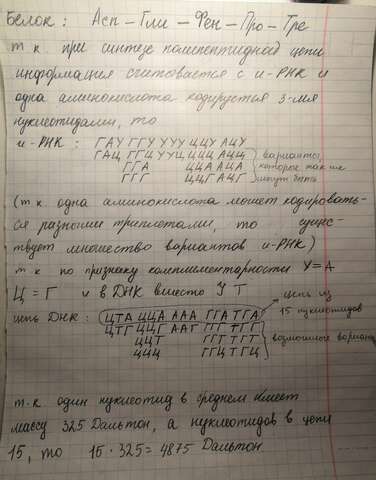 Белок: Асп – Гли – Фен – Про – Тре
т к при синтезе полипептидной цепи
информация считывается с и-РНК и
одна аминокислота кодируется 3-мя
нуклеотидами, то
и-РНК: ГАУ ГГУ УУУ ЦЦУ АЦУ
ГАЦ ГГЦ УУЦ ЦЦЦ АЦЦ варианты,
ГГА ЦЦА АЦА которые так же
ГГГ ЦЦГ АЦГ могут быть
(т к одна аминокислота может кодировать-
ся разными триплетами, то сущес-
твует множество вариантов и-РНК)
т к по признаку комплиментарности У=А
Ц = Г и в ДНК вместо У Т
цепь ДНК: ЦТА ЦЦА ААА ГГА ТГА цепь из 15 нуклеотидов
ЦТГ ЦЦГ ААГ ГГГ ТГГ
ЦЦТ ГГТ ТГТ возможные вариан
ЦЦЦ ГГЦ ТГЦ
т к один нуклеотид в среднем имеет
массу 325 Дальтон, а нуклеотидов в цепи
15, то 15 · 325 = 4875 Дальтон